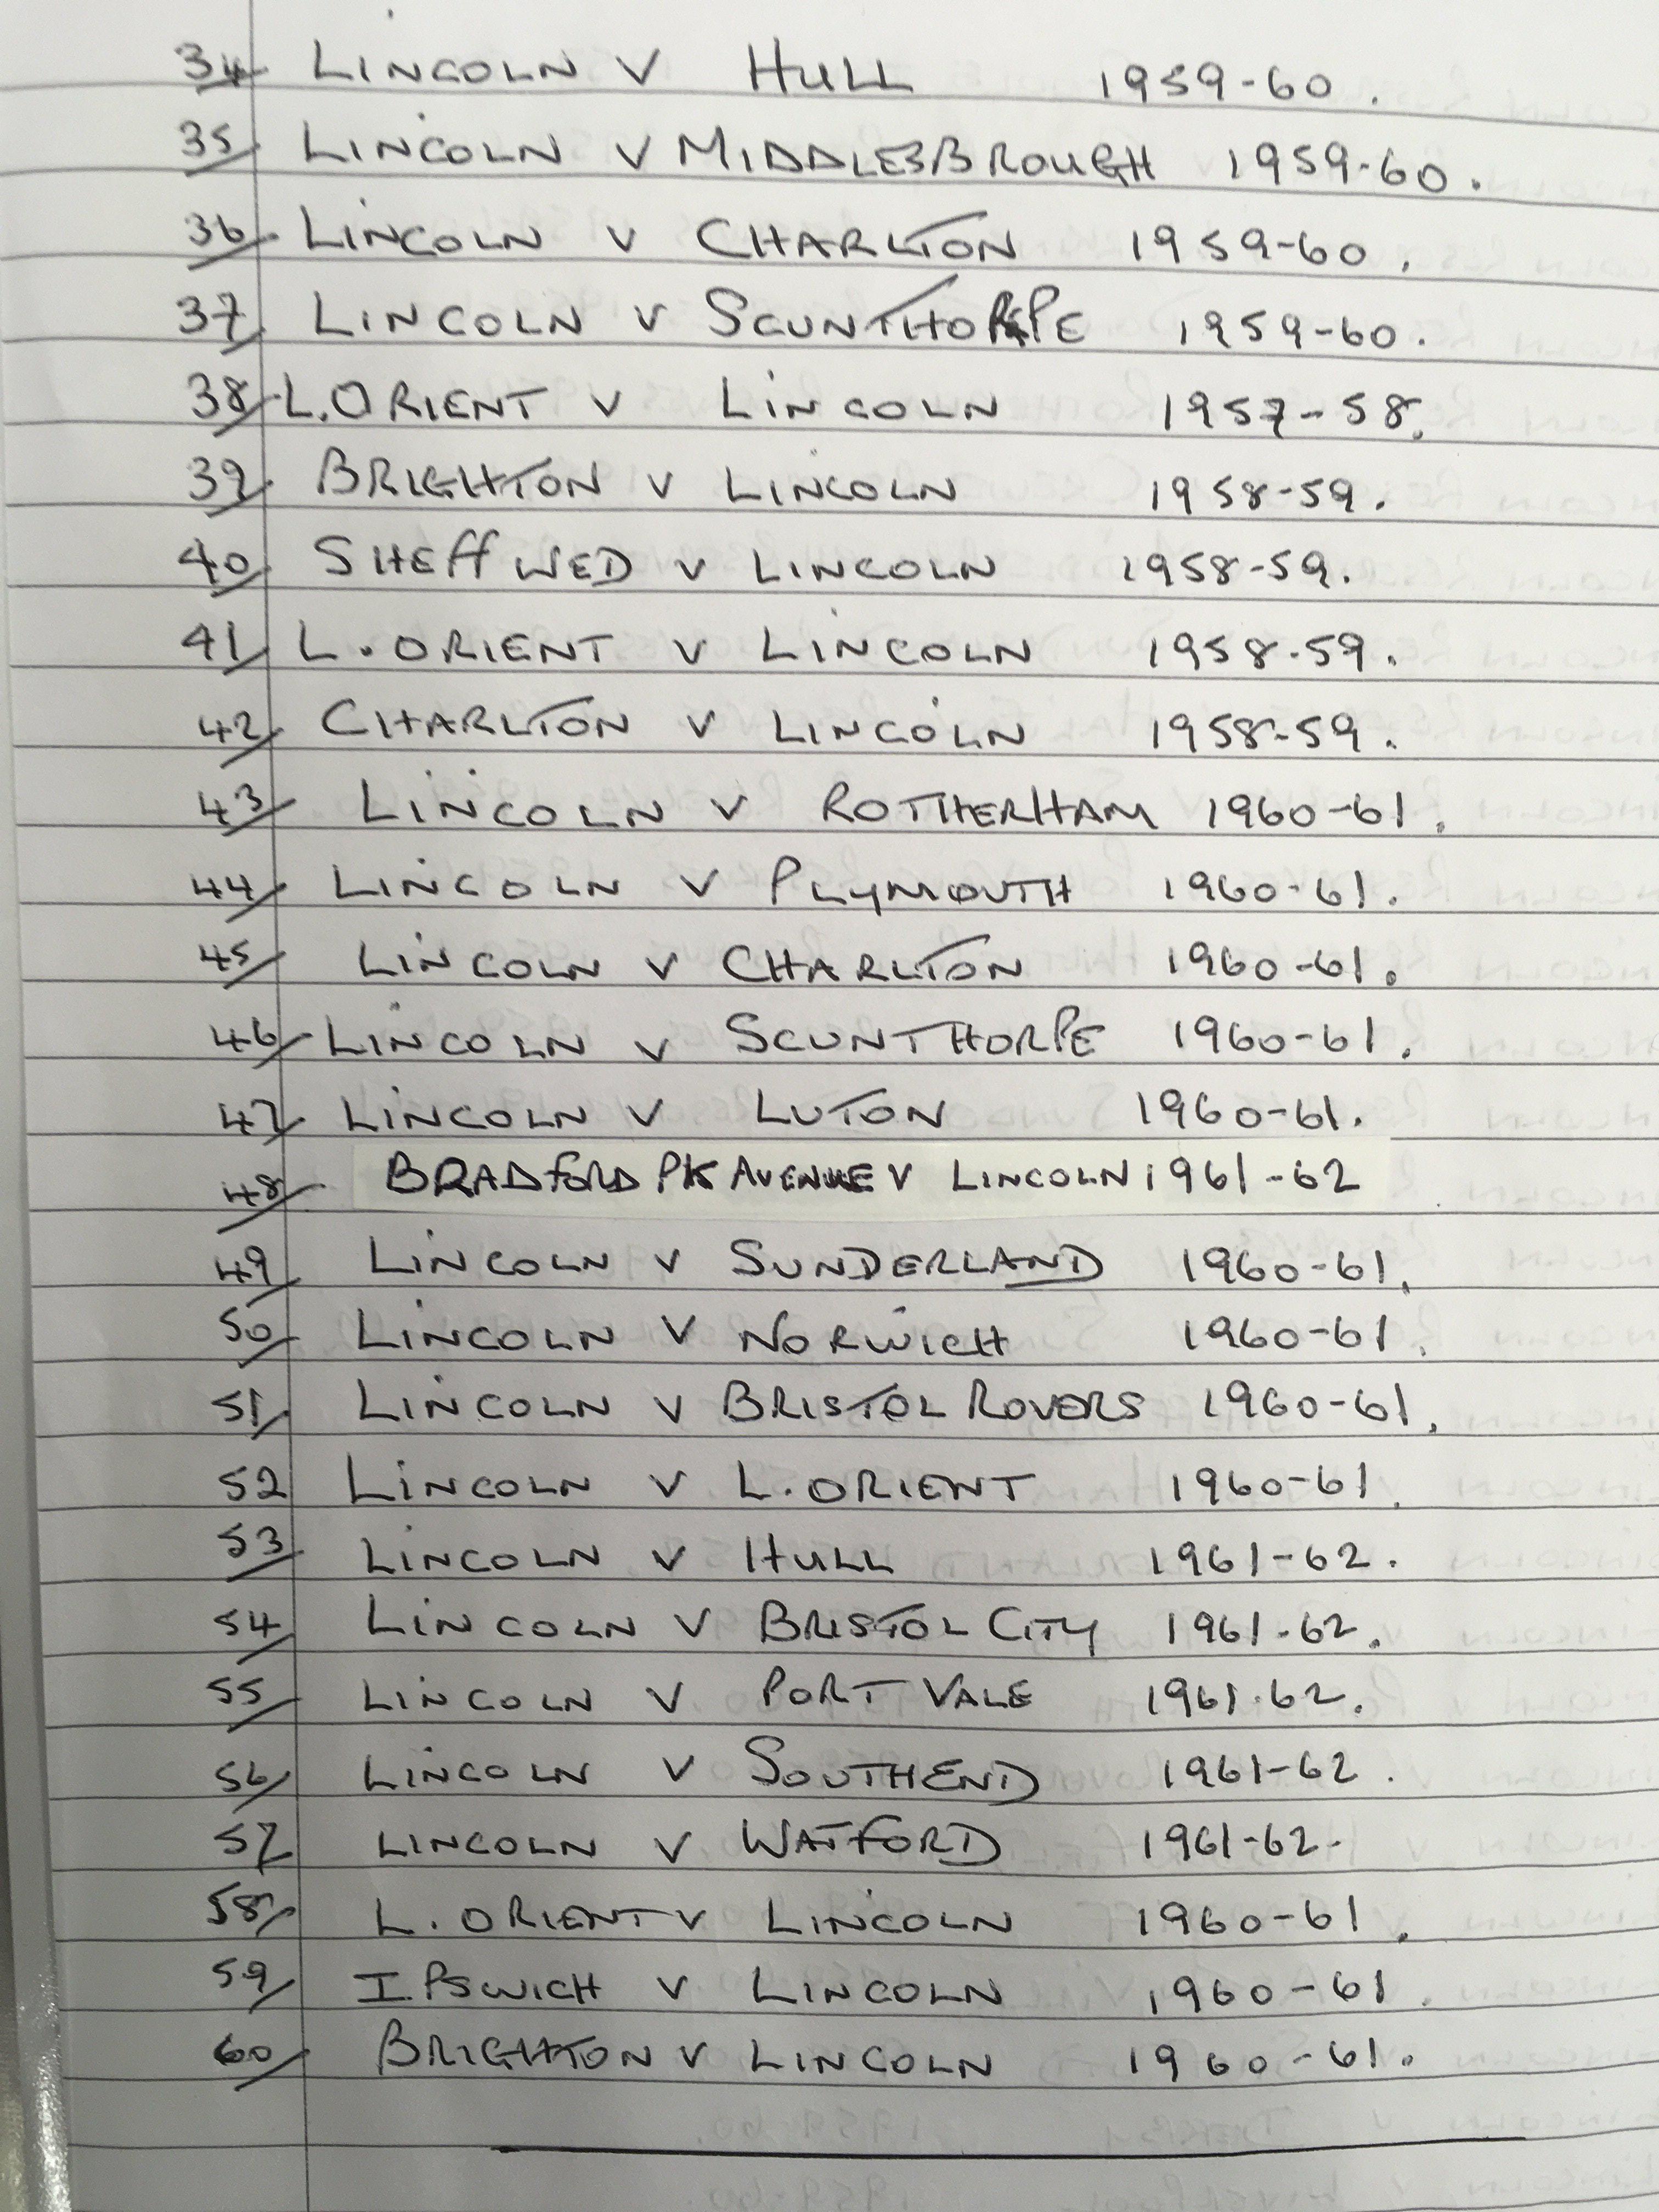 34/ LINCOLN V HULL 1959-60.
35/ LINCOLN V MIDDLESBROUGH 1959-60.
36/ LINCOLN V CHARLTON 1959-60.
37/ LINCOLN V SCUNTHORPE 1959-60.
38/ L.ORIENT V LINCOLN 1957-58.
39/ BRIGHTON V LINCOLN 1958-59.
40/ SHEFF WED V LINCOLN 1958-59.
41/ L.ORIENT V LINCOLN 1958-59.
42/ CHARLTON V LINCOLN 1958-59.
43/ LINCOLN V ROTHERHAM 1960-61.
44/ LINCOLN V PLYMOUTH 1960-61.
45/ LINCOLN V CHARLTON 1960-61.
46/ LINCOLN V SCUNTHORPE 1960-61.
47/ LINCOLN V LUTON 1960-61.
48/ BRADFORD PK AVENUE V LINCOLN 1961-62
49/ LINCOLN V SUNDERLAND 1960-61.
50/ LINCOLN V NORWICH 1960-61.
51/ LINCOLN V BRISTOL ROVERS 1960-61.
52 LINCOLN V L.ORIENT 1960-61.
53/ LINCOLN V HULL 1961-62.
54/ LINCOLN V BRISTOL CITY 1961-62.
55/ LINCOLN V PORT VALE 1961-62.
56/ LINCOLN V SOUTHEND 1961-62.
57/ LINCOLN V WATFORD 1961-62.
58/ L.ORIENT V LINCOLN 1960-61.
59/ IPSWICH V LINCOLN 1960-61.
60/ BRIGHTON V LINCOLN 1960-61.